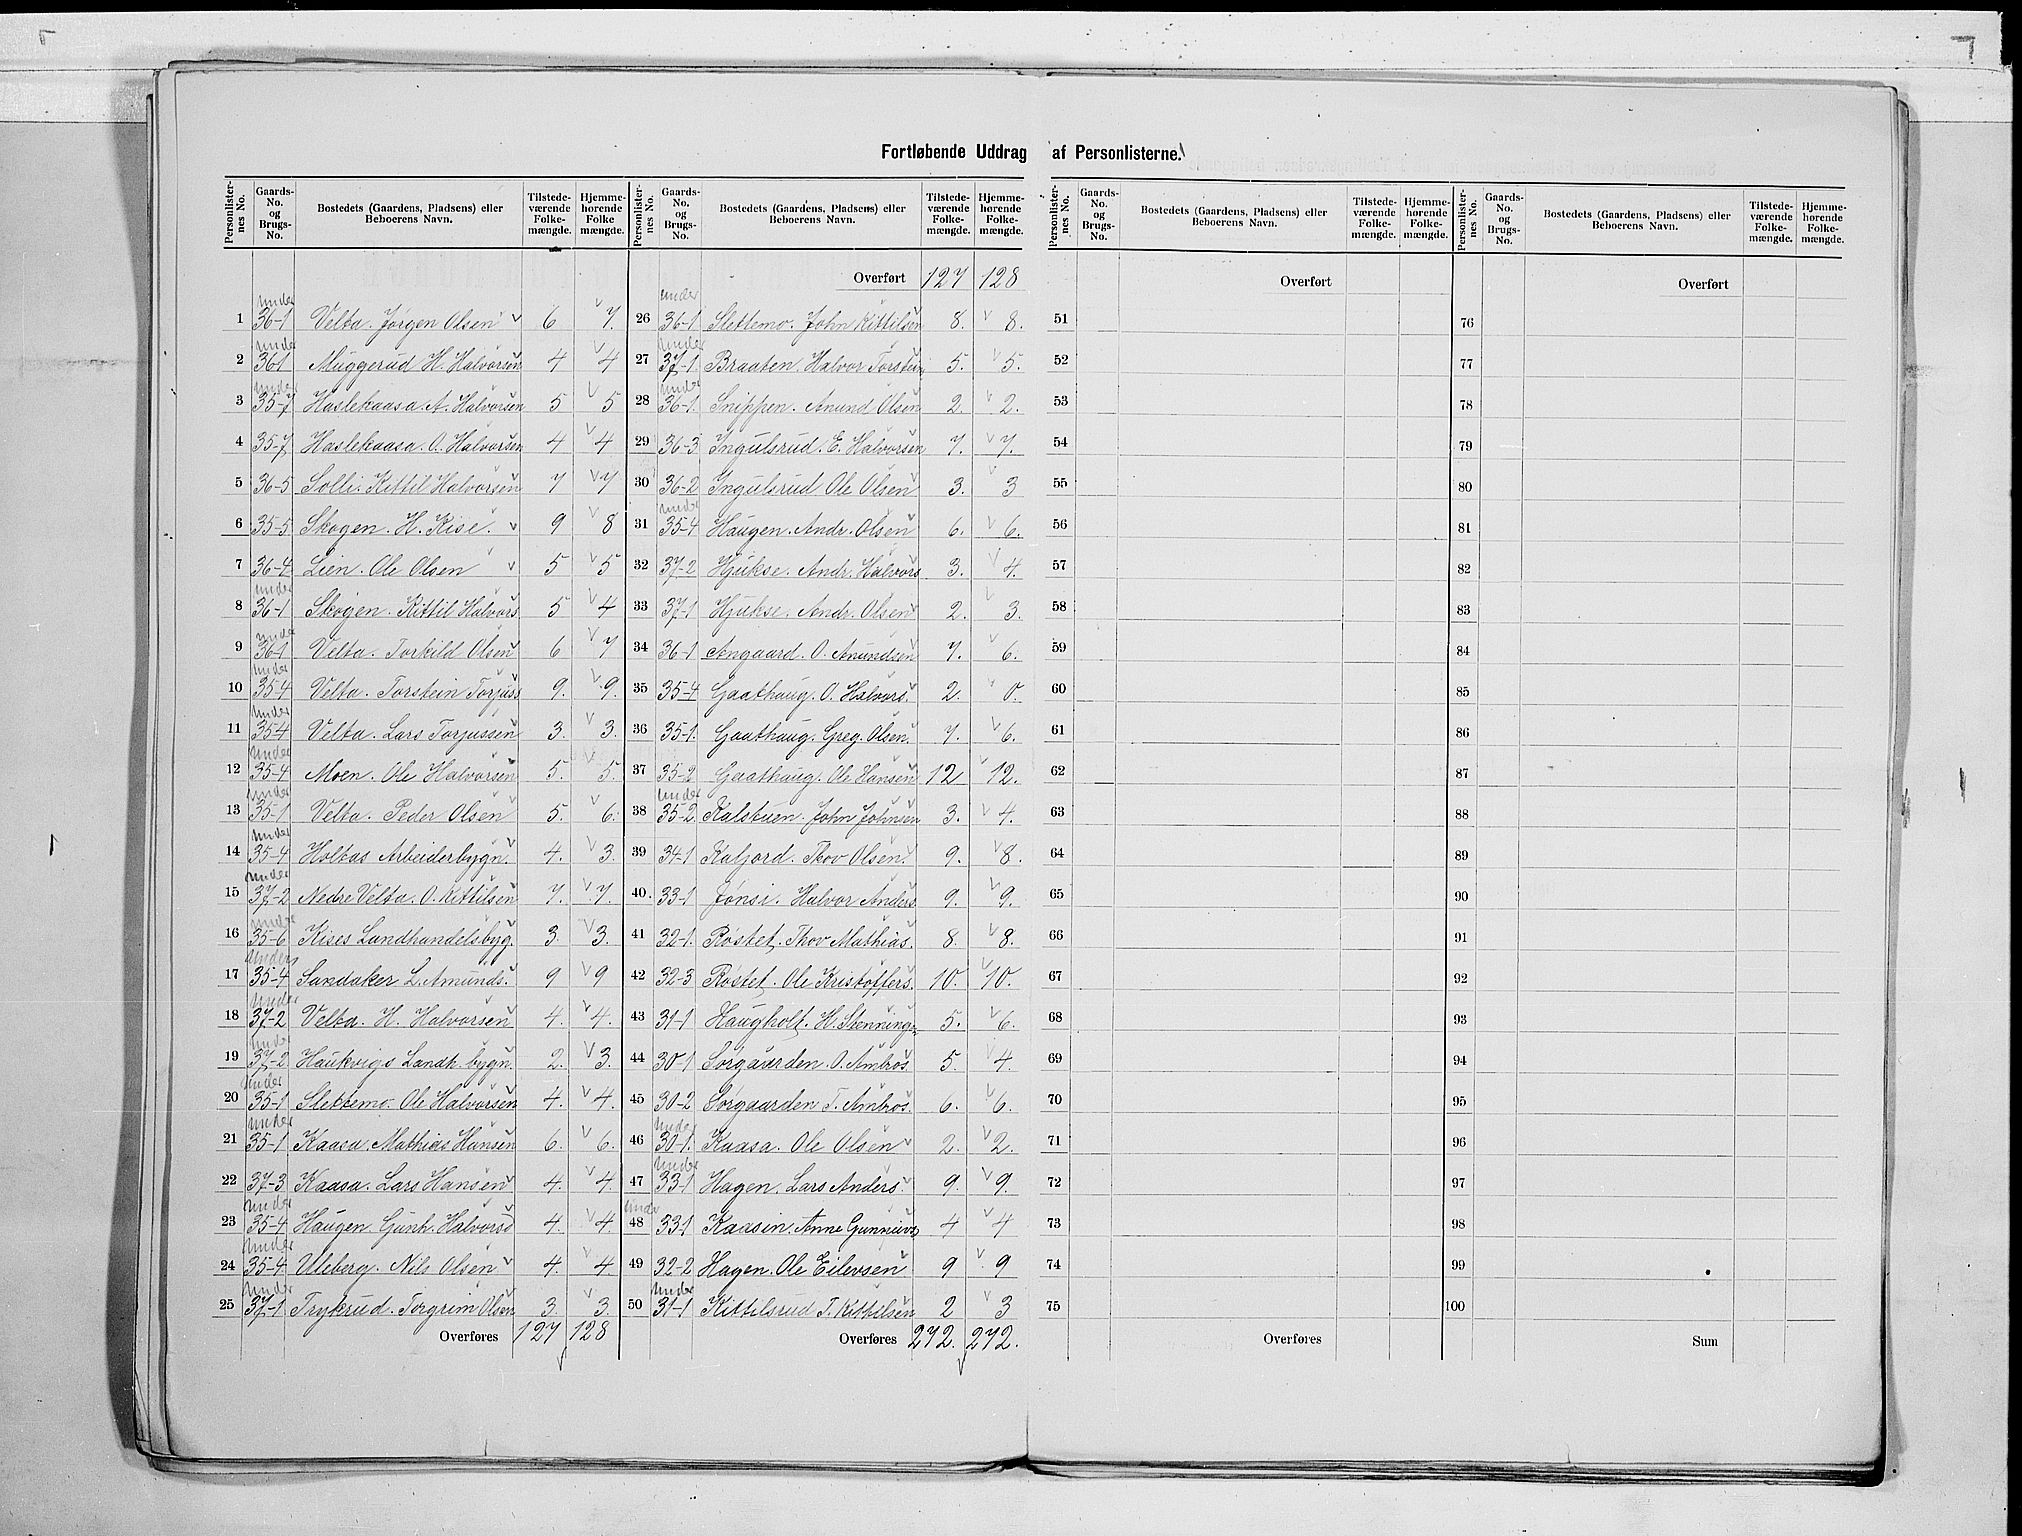 Fortløbende Uddrag af Personlisterne.
Personlister-nes No. | Gaards-No. og Brugs-No. | Bostedets (Gaardens, Pladsens) eller Beboerens Navn. | Tilstede-værende Folke-mængde. | Hjemme-hørende Folke mængde.
1 under 36-1 Velta. Jørgen Olsen 6 7.
2 under 36-1 Muggerud H. Halvorsen 4 4
3 under 35-7 Haslekaasa. A. Halvorsen 5 5
4 35-7 Haslekaasa. O. Halvorsen 4 4
5 36-5 Solli. Kittil Halvorsen 7 7
6 35-5 Skogen. H. Kise. 9 8
7 36-4 Lien. Ole Olsen 5 5
8 under 36-1 Skogen. Kittil Halvors 5 4
9 under 36-1 Velta. Torkild Olsen 6 7
10 under 35-4 Velta. Torstein Torjuss 9. 9.
11 under 35-4 Velta. Lars Torjussen 3. 3.
12 under 35-4 Moen. Ole Halvorsen 5. 5.
13 under 35-1 Velta. Peder Olsen 5. 6.
14 under 35-4 Holtas Arbeiderbygn. 4. 3.
15 under 37-2 Nedre Velta. O. Kittilsen 7. 7.
16 under 35-6 Kises Landhandelsbyg. 3 3.
17 under 35-4 Sandaker L. Amunds. 9 9
18 under 37-2 Velta. H. Halvorsen 4. 4.
19 under 37-2 Haukvigs Landh. bygn. 2. 3.
20 under 35-1 Slettemo. Ole Halvorsen 4. 4.
21 under 35-1 Kaasa. Mathias Hansen 6. 6.
22 37-3 Kaasa. Lars Hansen 4. 4.
23 under 35-4 Haugen Gunh. Halvorsd 4. 4
24 under 35-4 Uleberg. Nils Olsen 4. 4.
25 under 37-1 Trykrud. Torgrim Olsen 3. 3.
Overføres 127 128
Personlister-nes No. | Gaards-No. og Brugs-No. | Bostedets (Gaardens, Pladsens) eller Beboerens Navn. | Tilstede-værende Folke-mængde. | Hjemme-hørende Folke-mængde.
Overført 127 128
26 under 36-1 Slettemo. John Kittilsen 8. 8.
27 under 37-1. Braaten. Halvor Torstein 5. 5.
28 under 36-1. Snippen. Anund Olsen 2. 2.
29 36-3 Ingulsrud. E. Halvorsen 7. 7.
30 36-2 Ingulsrud Ole Olsen 3. 3
31 under 35-4 Haugen. Andr. Olsen 6. 6.
32 37-2 Hjukse. Andr. Halvors 3. 4.
33 37-1 Hjukse. Andr. Olsen 2. 3.
34 36-1 Angaard. O. Anundsen 7. 6.
35 35-4 Gaathaug. O. Halvors. 2. 0.
36 35-1. Gaathaug. Greg. Olsen. 7. 6.
37 35-2 Gaathaug. Ole Hansen 12 12.
38 under 35-2. Kalstuen. John Johnsen 3. 4.
39 34-1 Kafjord. Thov Olsen. 9. 8.
40. 33-1 Jønsi. Halvor Anders 9. 9.
41 32-1. Røstet. Thov Mathias. 8. 8.
42 32-3 Røstet. Ole Kristoffers. 10. 10.
43 31-1 Haugholt. H. Stenninge 5. 6.
44 30-1 Sørgaarden. O. Ambros 5. 4.
45 30-2 Sørgaarden T. Ambros. 6. 6.
46 under 30-1. Kaasa. Ole Olsen 2. 2.
47 under 33-1 Hagen. Lars Anders. 9. 9.
48 under 33-1 Kaasin. Anne Gunneivs 4 4
49 32-2 Hagen. Ole Eilevsen 9 9
50 under 31-1 Kittilsrud T. Kittilsen 2 3
Overføres 272. 272.
Personlister-nes No. | Gaards-No. og Brugs-No. | Bostedets (Gaardens, Pladsens) eller Beboerens Navn. | Tilstede-værende Folke-mængde. | Hjemme-hørende Folke-mængde.
Overført
51
52
53
54
55
56
57
58
59
60
61
62
63
64
65
66
67
68
69
70
71
72
73
74
75
Overføres
Personlister-nes No. | Gaards-No. og Brugs-No. | Bostedets (Gaardens, Pladsens) eller Beboerens Navn. | Tilstede-værende Folke-mængde. | Hjemme-hørende Folke-mængde.
Overført
76
77
78
79
80
81
82
83
84
85
86
87
88
89
90
91
92
93
94
95
96
97
98
99
100
Sum